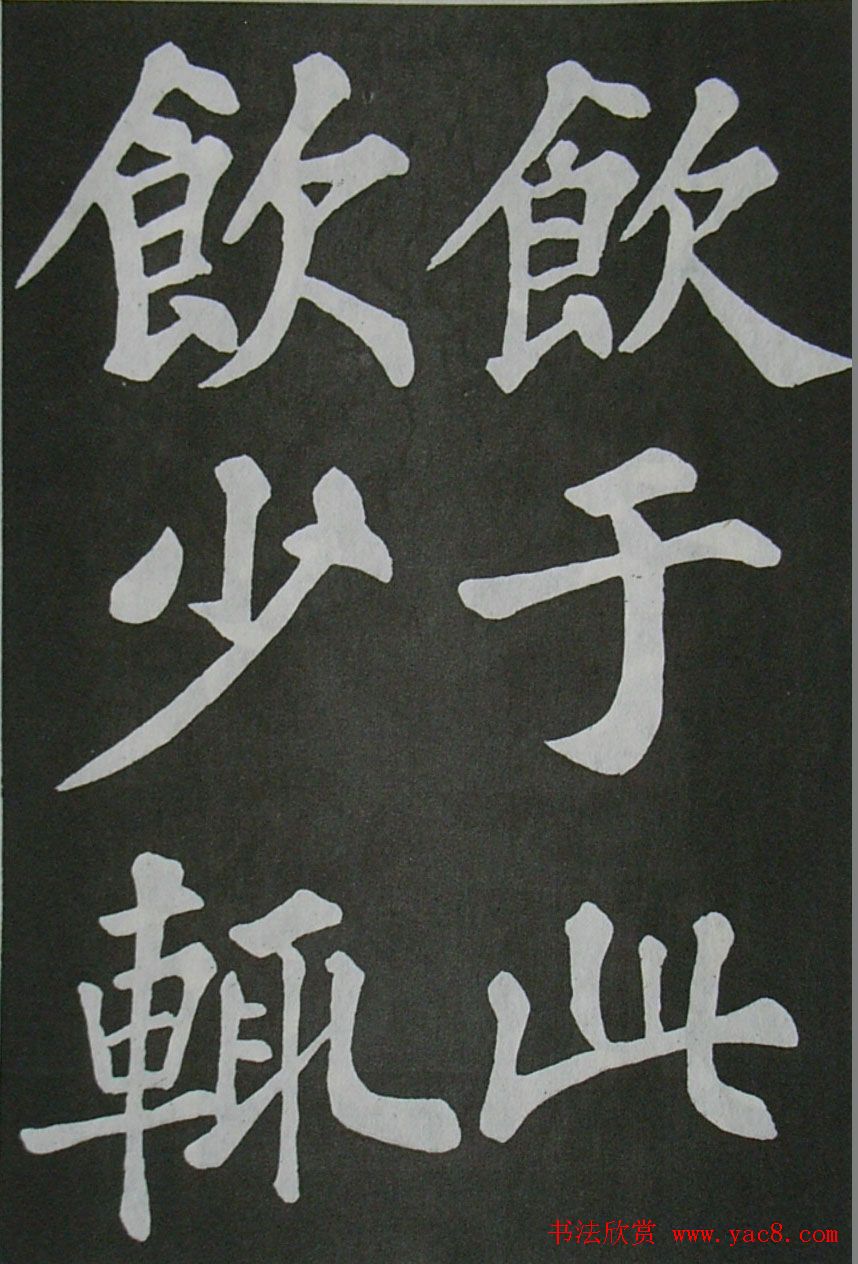 飲于此
飲少輒
书法欣赏 www.yac8.com